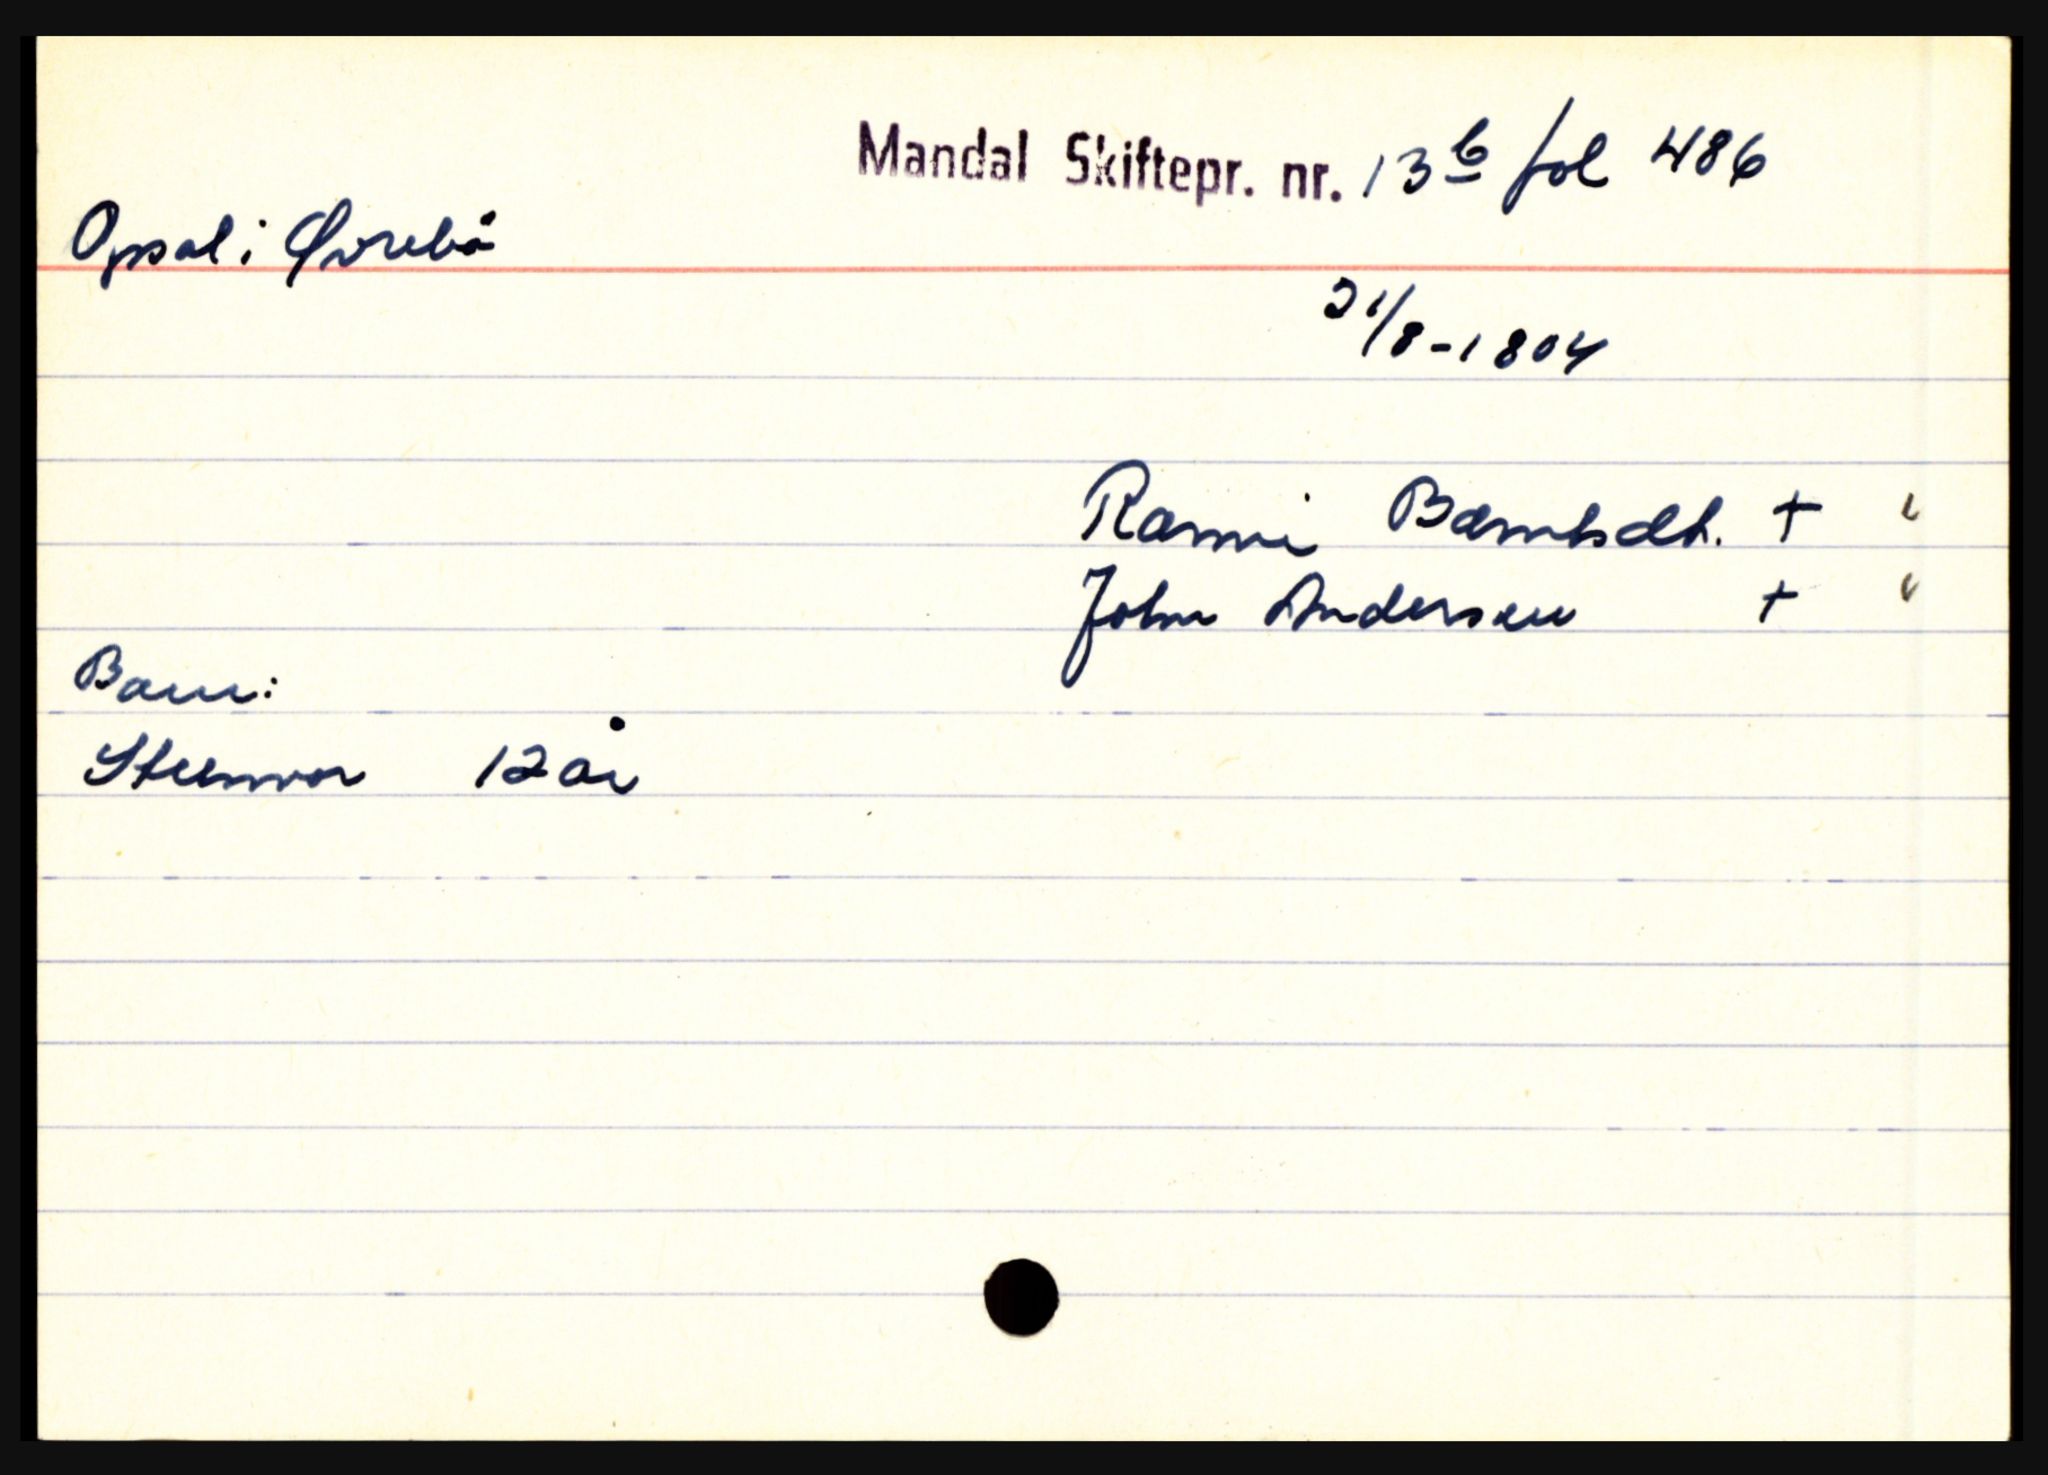 Mandal Skiftepr. nr. 13 b fol 486
Opsal i Øvrebö
31/8-1804
Ranni Berntsdt. +
John Andersen +
Barn:
Steenvor 12 år